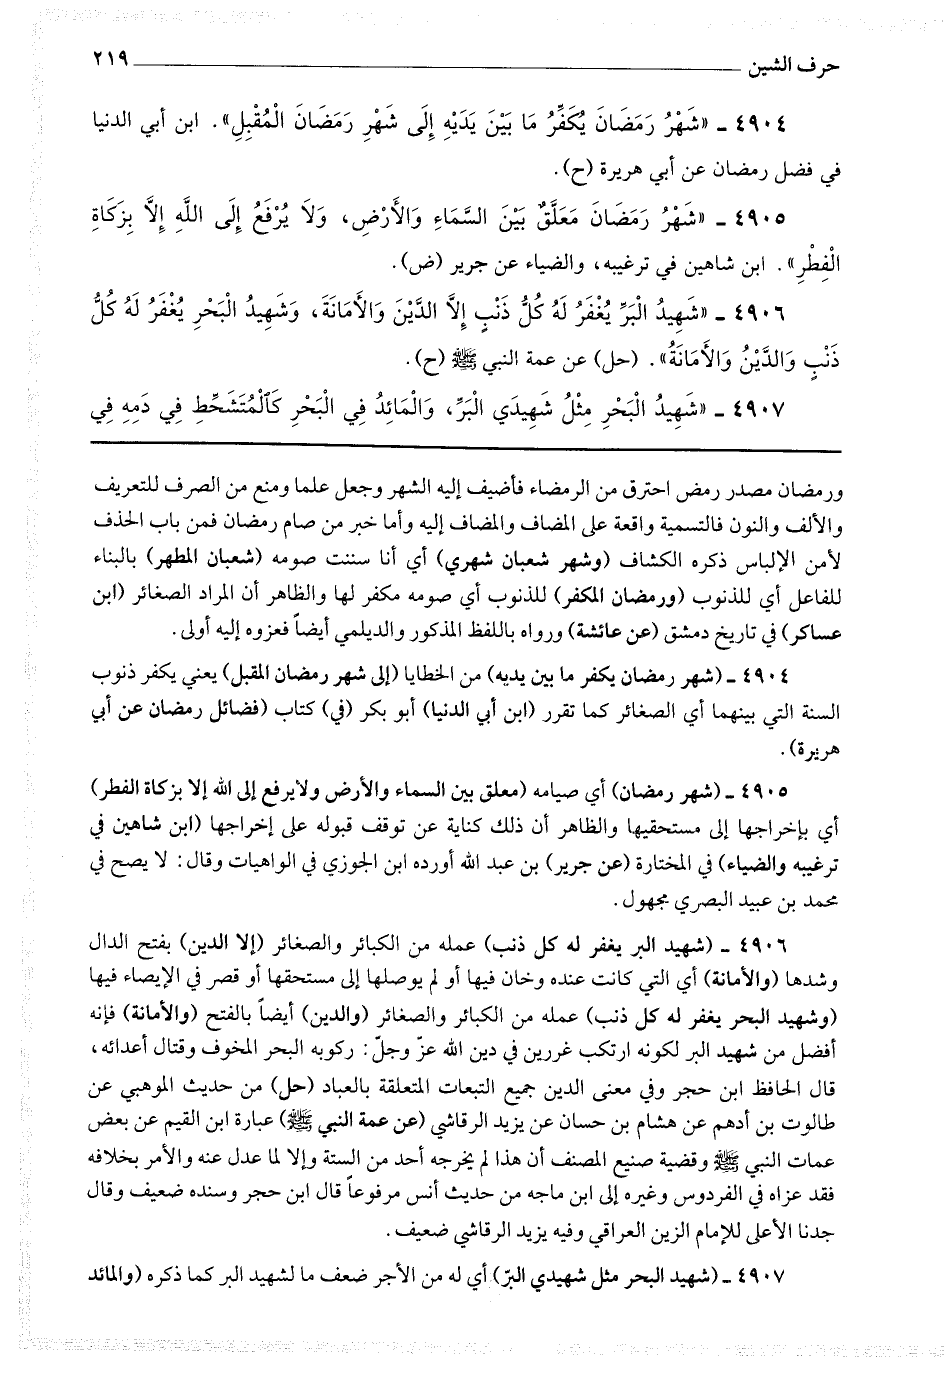 حرف الشين ٢١٩
٤٩٠٤ ـ «شَهْرُ رَمَضَانَ يُكَفِّرُ مَا بَيْنَ يَدَيْهِ إِلَى شَهْرِ رَمَضَانَ الْمُقْبِلِ». ابن أبي الدنيا
في فضل رمضان عن أبي هريرة (ح).
٤٩٠٥ ـ «شَهْرُ رَمَضَانَ مَعَلَّقٌ بَيْنَ السَّمَاءِ وَالْأَرْضِ، وَلَا يُرْفَعُ إِلَى اللَّهِ إِلَّا بِزَكَاةِ
الْفِطْرِ». ابن شاهين في ترغيبه، والضياء عن جرير (ض).
٤٩٠٦ ـ «شَهِيدُ الْبَرِّ يُغْفَرُ لَهُ كُلُّ ذَنْبٍ إِلَّا الدَّيْنَ وَالْأَمَانَةَ، وَشَهِيدُ الْبَحْرِ يُغْفَرُ لَهُ كُلُّ
ذَنْبٍ وَالدَّيْنُ وَالْأَمَانَةُ». (حل) عن عمة النبي ﷺ (ح).
٤٩٠٧ ـ «شَهِيدُ الْبَحْرِ مِثْلُ شَهِيدَيِ الْبَرِّ، وَالْمَائِدُ فِي الْبَحْرِ كَالْمُتَشَحِّطِ فِي دَمِهِ فِي
ورمضان مصدر رمض احترق من الرمضاء فأضيف إليه الشهر وجعل علما ومنع من الصرف للتعريف
والألف والنون فالتسمية واقعة على المضاف والمضاف إليه وأما خبر من صام رمضان فمن باب الحذف
لأمن الإلباس ذكره الكشاف (وشهر شعبان شهري) أي أنا سننت صومه (شعبان المطهر) بالبناء
للفاعل أي للذنوب (ورمضان المكفر) للذنوب أي صومه مكفر لها والظاهر أن المراد الصغائر (ابن
عساكر) في تاريخ دمشق (عن عائشة) ورواه باللفظ المذكور والديلمي أيضاً فعزوه إليه أولى.
٤٩٠٤ ـ (شهر رمضان يكفر ما بين يديه) من الخطايا (إلى شهر رمضان المقبل) يعني يكفر ذنوب
السنة التي بينهما أي الصغائر كما تقرر (ابن أبي الدنيا) أبو بكر (في) كتاب (فضائل رمضان عن أبي
هريرة).
٤٩٠٥ ـ (شهر رمضان) أي صيامه (معلق بين السماء والأرض ولا يرفع إلى الله إلا بزكاة الفطر)
أي بإخراجها إلى مستحقيها والظاهر أن ذلك كناية عن توقف قبوله على إخراجها (ابن شاهين في
ترغيبه والضياء) في المختارة (عن جرير) بن عبد الله أورده ابن الجوزي في الواهيات وقال: لا يصح في
محمد بن عبيد البصري مجهول.
٤٩٠٦ ـ (شهيد البر يغفر له كل ذنب) عمله من الكبائر والصغائر (إلا الدين) بفتح الدال
وشدها (والأمانة) أي التي كانت عنده وخان فيها أو لم يوصلها إلى مستحقها أو قصر في الإيصاء فيها
(وشهيد البحر يغفر له كل ذنب) عمله من الكبائر والصغائر (والدين) أيضاً بالفتح (والأمانة) فإنه
أفضل من شهيد البر لكونه ارتكب غررين في دين الله عزّ وجلّ: ركوبه البحر المخوف وقتال أعدائه،
قال الحافظ ابن حجر وفي معنى الدين جميع التبعات المتعلقة بالعباد (حل) من حديث الموهبي عن
طالوت بن أدهم عن هشام بن حسان عن يزيد الرقاشي (عن عمة النبي ﷺ) عبارة ابن القيم عن بعض
عمات النبي ﷺ وقضية صنيع المصنف أن هذا لم يخرجه أحد من الستة وإلا لما عدل عنه والأمر بخلافه
فقد عزاه في الفردوس وغيره إلى ابن ماجه من حديث أنس مرفوعاً قال ابن حجر وسنده ضعيف وقال
جدنا الأعلى للإمام الزين العراقي وفيه يزيد الرقاشي ضعيف.
٤٩٠٧ ـ (شهيد البحر مثل شهيدي البرّ) أي له من الأجر ضعف ما لشهيد البر كما ذكره (والمائد